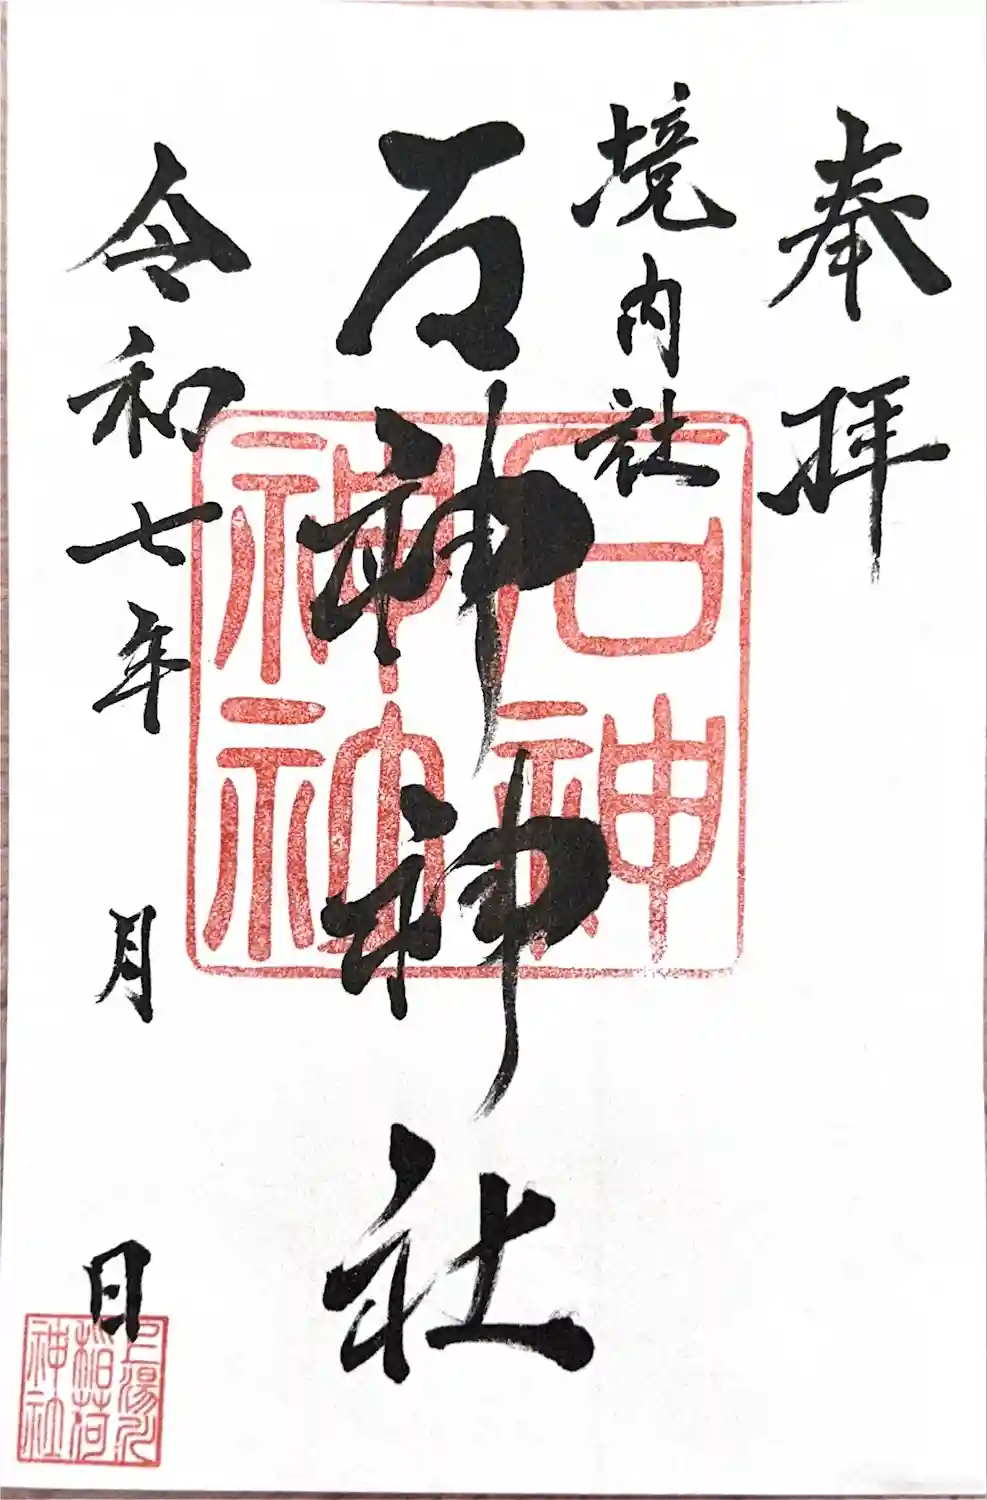 奉拝
境内社
石神神社
令和七年 月 日
石神
神社
上湯川
稲荷
神社